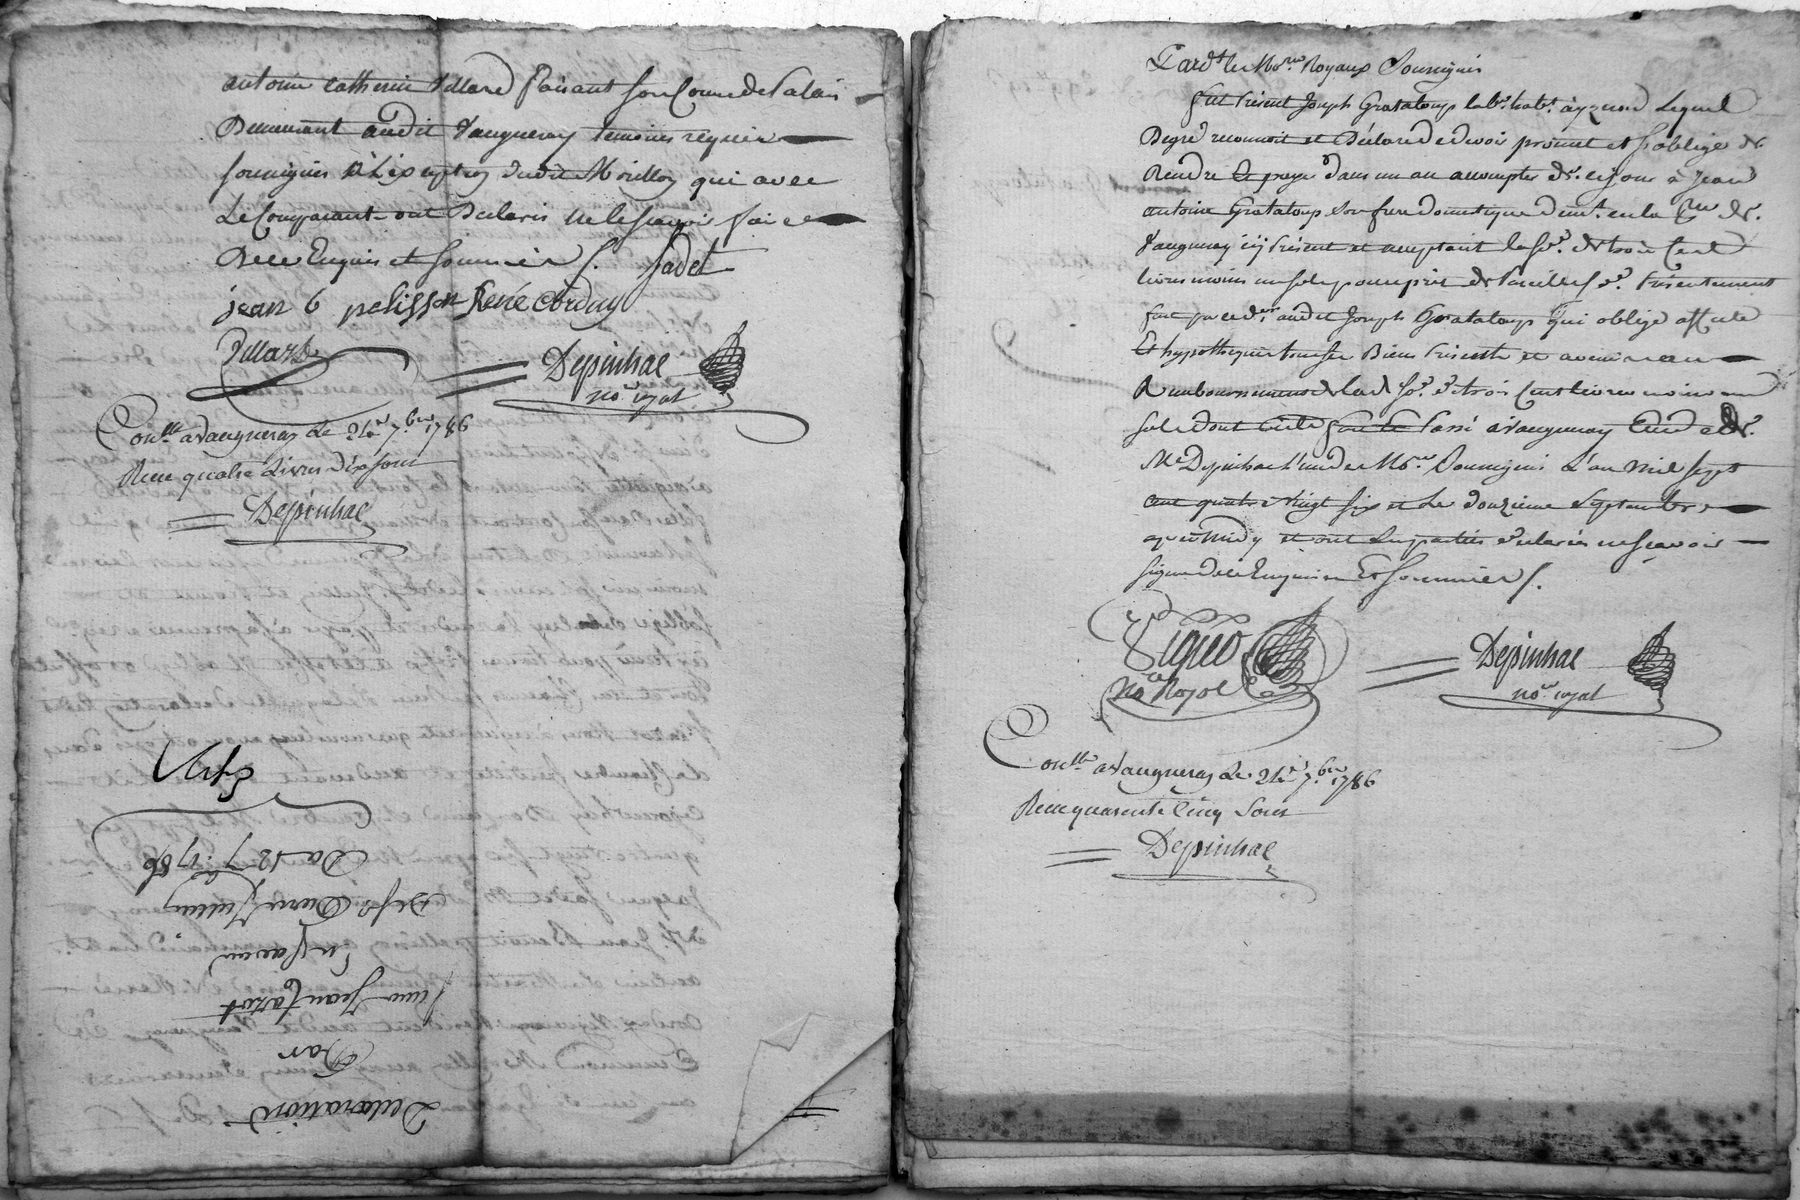 antoine catherin Villard faisant son Comme de Palais
Demeurant audit Vaugneray temoins requis
soussignés à L'exception dudit Morillon qui avec
Le Comparant ont Déclarés ne le sçavoir faire
De ce Enquis et sommés /. fadet
jean b pelisson René Corday
Villard
Depinhac
no.re royal
Con.llé a Vaugneray Le 24.e 7.bre 1786
Recu quatre Livres dix sous
Depinhac
Declaration
Par
Jean Cazot
En faveur
De s.r Pierre Julien
Du 12 7.bre 1786
Pard.t les No.res Royaux Soussignés
fut Présent Joseph Grataloup lab.r habt. à yzeron Lequel
Degré reconnoit et Déclare de devoir promet et s'oblige de
Rendre et payer dans un an a compter de ce jour à Jean
antoine Grataloup Son frere domestique dem.t en la P.sse de
Vaugneray icy Présent et acceptant la So.e de trois Cent
livres moins un sol pour prix de Pareille So.e Présentement
fait par led. audit Joseph Grataloup qui oblige affecte
Et hypotheque tous ses Biens Présents et avenir au
Remboursement de lad. So.e de trois Cent livres moins un
sol dont acte fait et Passé a Vaugneray Etude de
M.e Depinhac L'un des No.res Soussignés L'an mil sept
cent quatre Vingt six et Le douzieme Septembre
après Midy et ont Les parties déclarées ne sçavoir
signer De ce Enquises Et sommées /.
no.re Royal
Depinhac
no.re royal
Con.llé a Vaugneray Le 24.e 7.bre 1786
Recu quarente Cinq Sous
Depinhac